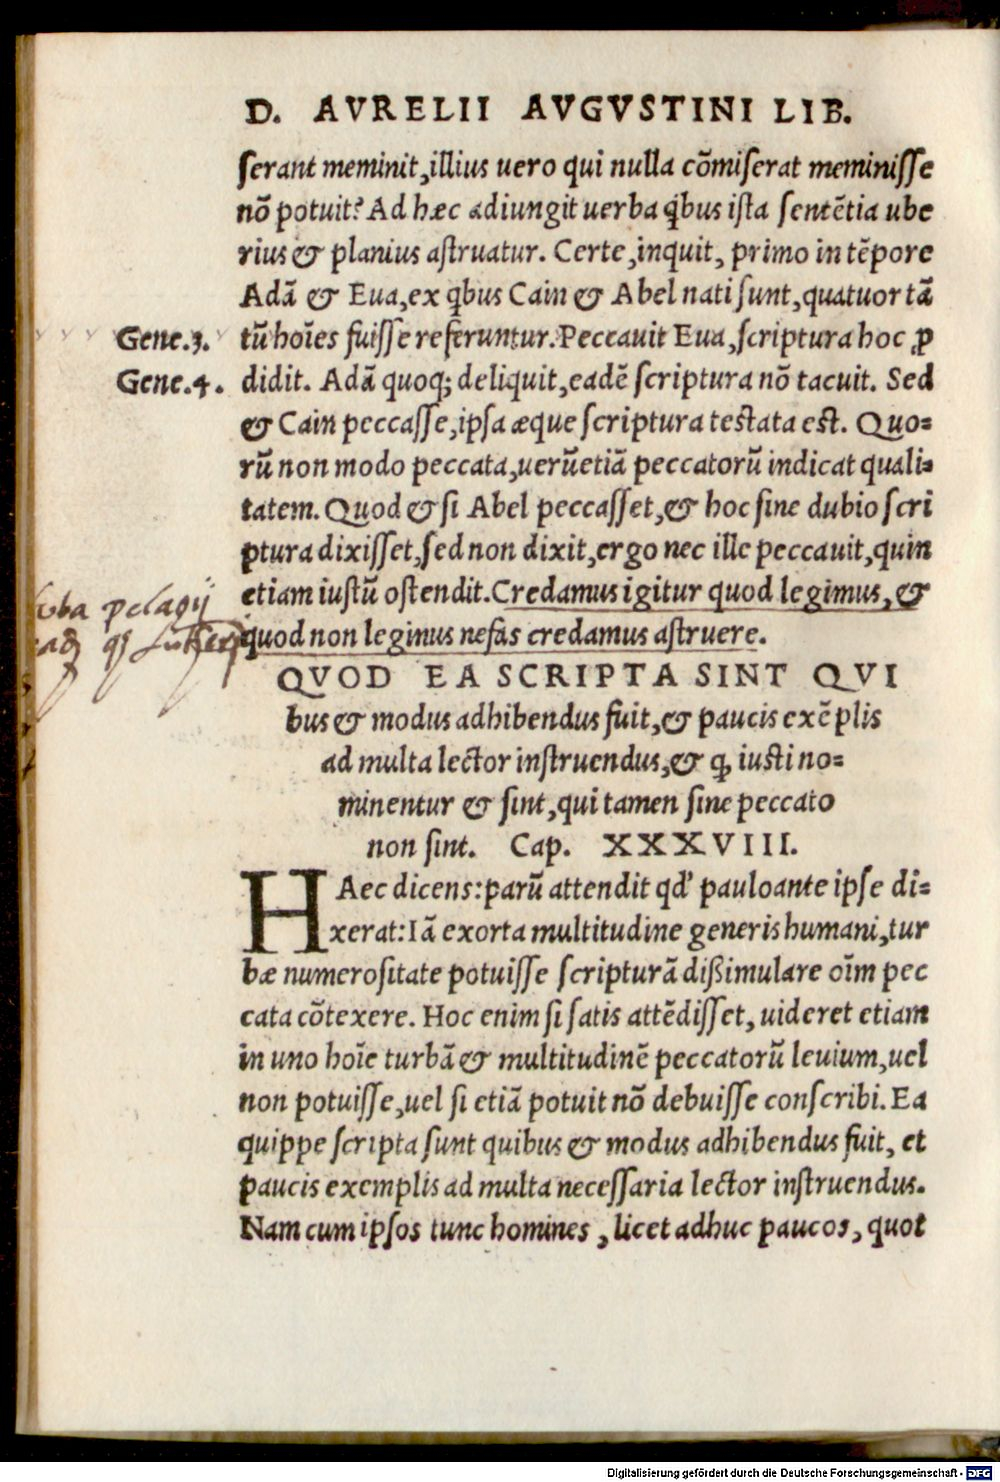 D. AVRELII AVGVSTINI LIB.
serant meminit, illius uero qui nulla cõmiserat meminisse
nõ potuit? Ad hæc adiungit uerba ꝗbus ista sentẽtia ube
rius & planius astruatur. Certe, inquit, primo in tẽpore
Adã & Eua, ex ꝗbus Cain & Abel nati sunt, quatuor tã
Gene.3. tũ hoĩes fuisse referuntur. Peccauit Eua, scriptura hoc ꝓ
Gene.4. didit. Adã quoqꝫ deliquit, eadẽ scriptura nõ tacuit. Sed
& Cain peccasse, ipsa æque scriptura testata est. Quo=
rũ non modo peccata, uerũetiã peccatorũ indicat quali=
tatem. Quod & si Abel peccasset, & hoc sine dubio scri
ptura dixisset, sed non dixit, ergo nec ille peccauit, quin
etiam iustũ ostendit. Credamus igitur quod legimus, &
pelagij
quod non legimus nefas credamus astruere.
QVOD EA SCRIPTA SINT QVI
bus & modus adhibendus fuit, & paucis exẽplis
ad multa lector instruendus, & ꝙ iusti no=
minentur & sint, qui tamen sine peccato
non sint. Cap. XXXVIII.
HAec dicens: parũ attendit qd' pauloante ipse di=
xerat: Iã exorta multitudine generis humani, tur
bæ numerositate potuisse scripturã dißimulare oĩm pec
cata cõtexere. Hoc enim si satis attẽdisset, uideret etiam
in uno hoĩe turbã & multitudinẽ peccatorũ leuium, uel
non potuisse, uel si etiã potuit nõ debuisse conscribi. Ea
quippe scripta sunt quibus & modus adhibendus fuit, et
paucis exemplis ad multa necessaria lector instruendus.
Nam cum ipsos tunc homines, licet adhuc paucos, quot
Digitalisierung gefördert durch die Deutsche Forschungsgemeinschaft - DFG